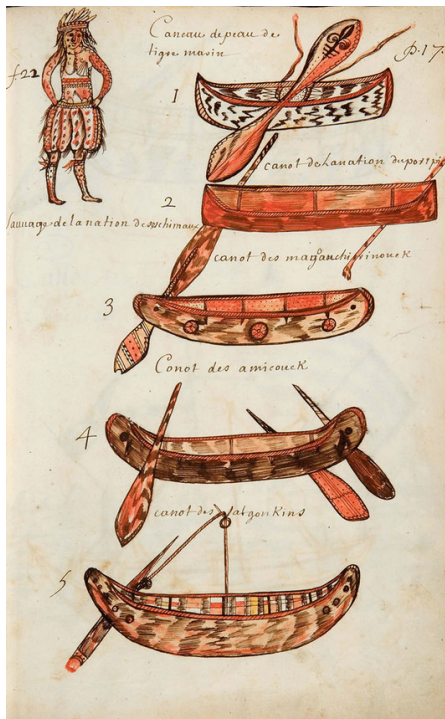 Caneau de peau de
tigre marin
p. 17.
f. 22
1
canot de la nation du portepic
2
Sauvage de la nation des eschimaux
canot des
3
Conot des amicouek
4
canot des algonkins
5